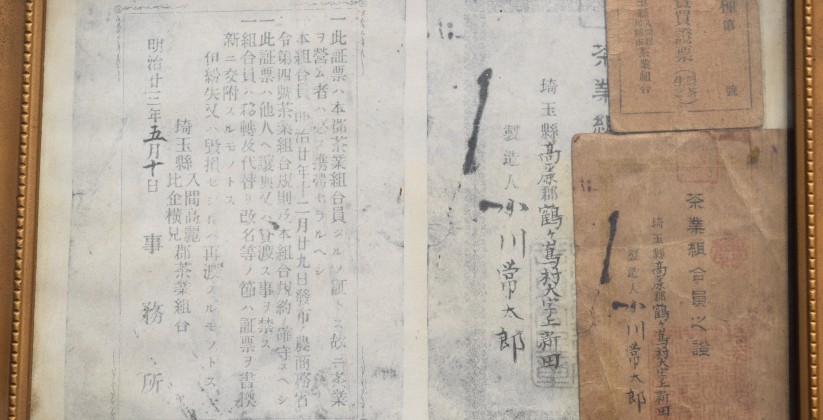 一此証票ハ本部茶業組合員タルノ証トス故ニ茶業
ヲ營ム者ハ必ス携帯セラルヘシ
一本組合員ハ明治廿年十二月廿九日發布ノ農商務省
令第四號茶業組合規則及本組合規約ヲ確守スヘシ
一此証票ハ他人ヘ讓與又ハ貸渡ス事ヲ禁ス
一組合員ハ移轉及代替リ改名等ノ節ハ証票ヲ書換
新ニ交附スルモノトス
但紛失又ハ毀損セシ
再渡スルモノトス
明治廿三年五月十日
埼玉縣
入間高麗
比企横見
郡茶業組合
事務所
茶業組
埼玉縣高麗郡鶴ヶ嶌村大字上新田
製造人
小川常太郎
第 號
賣買證票
茶業組合
茶業組合員之證
埼玉縣高麗郡鶴ヶ嶌村大字上新田
製造人
小川常太郎